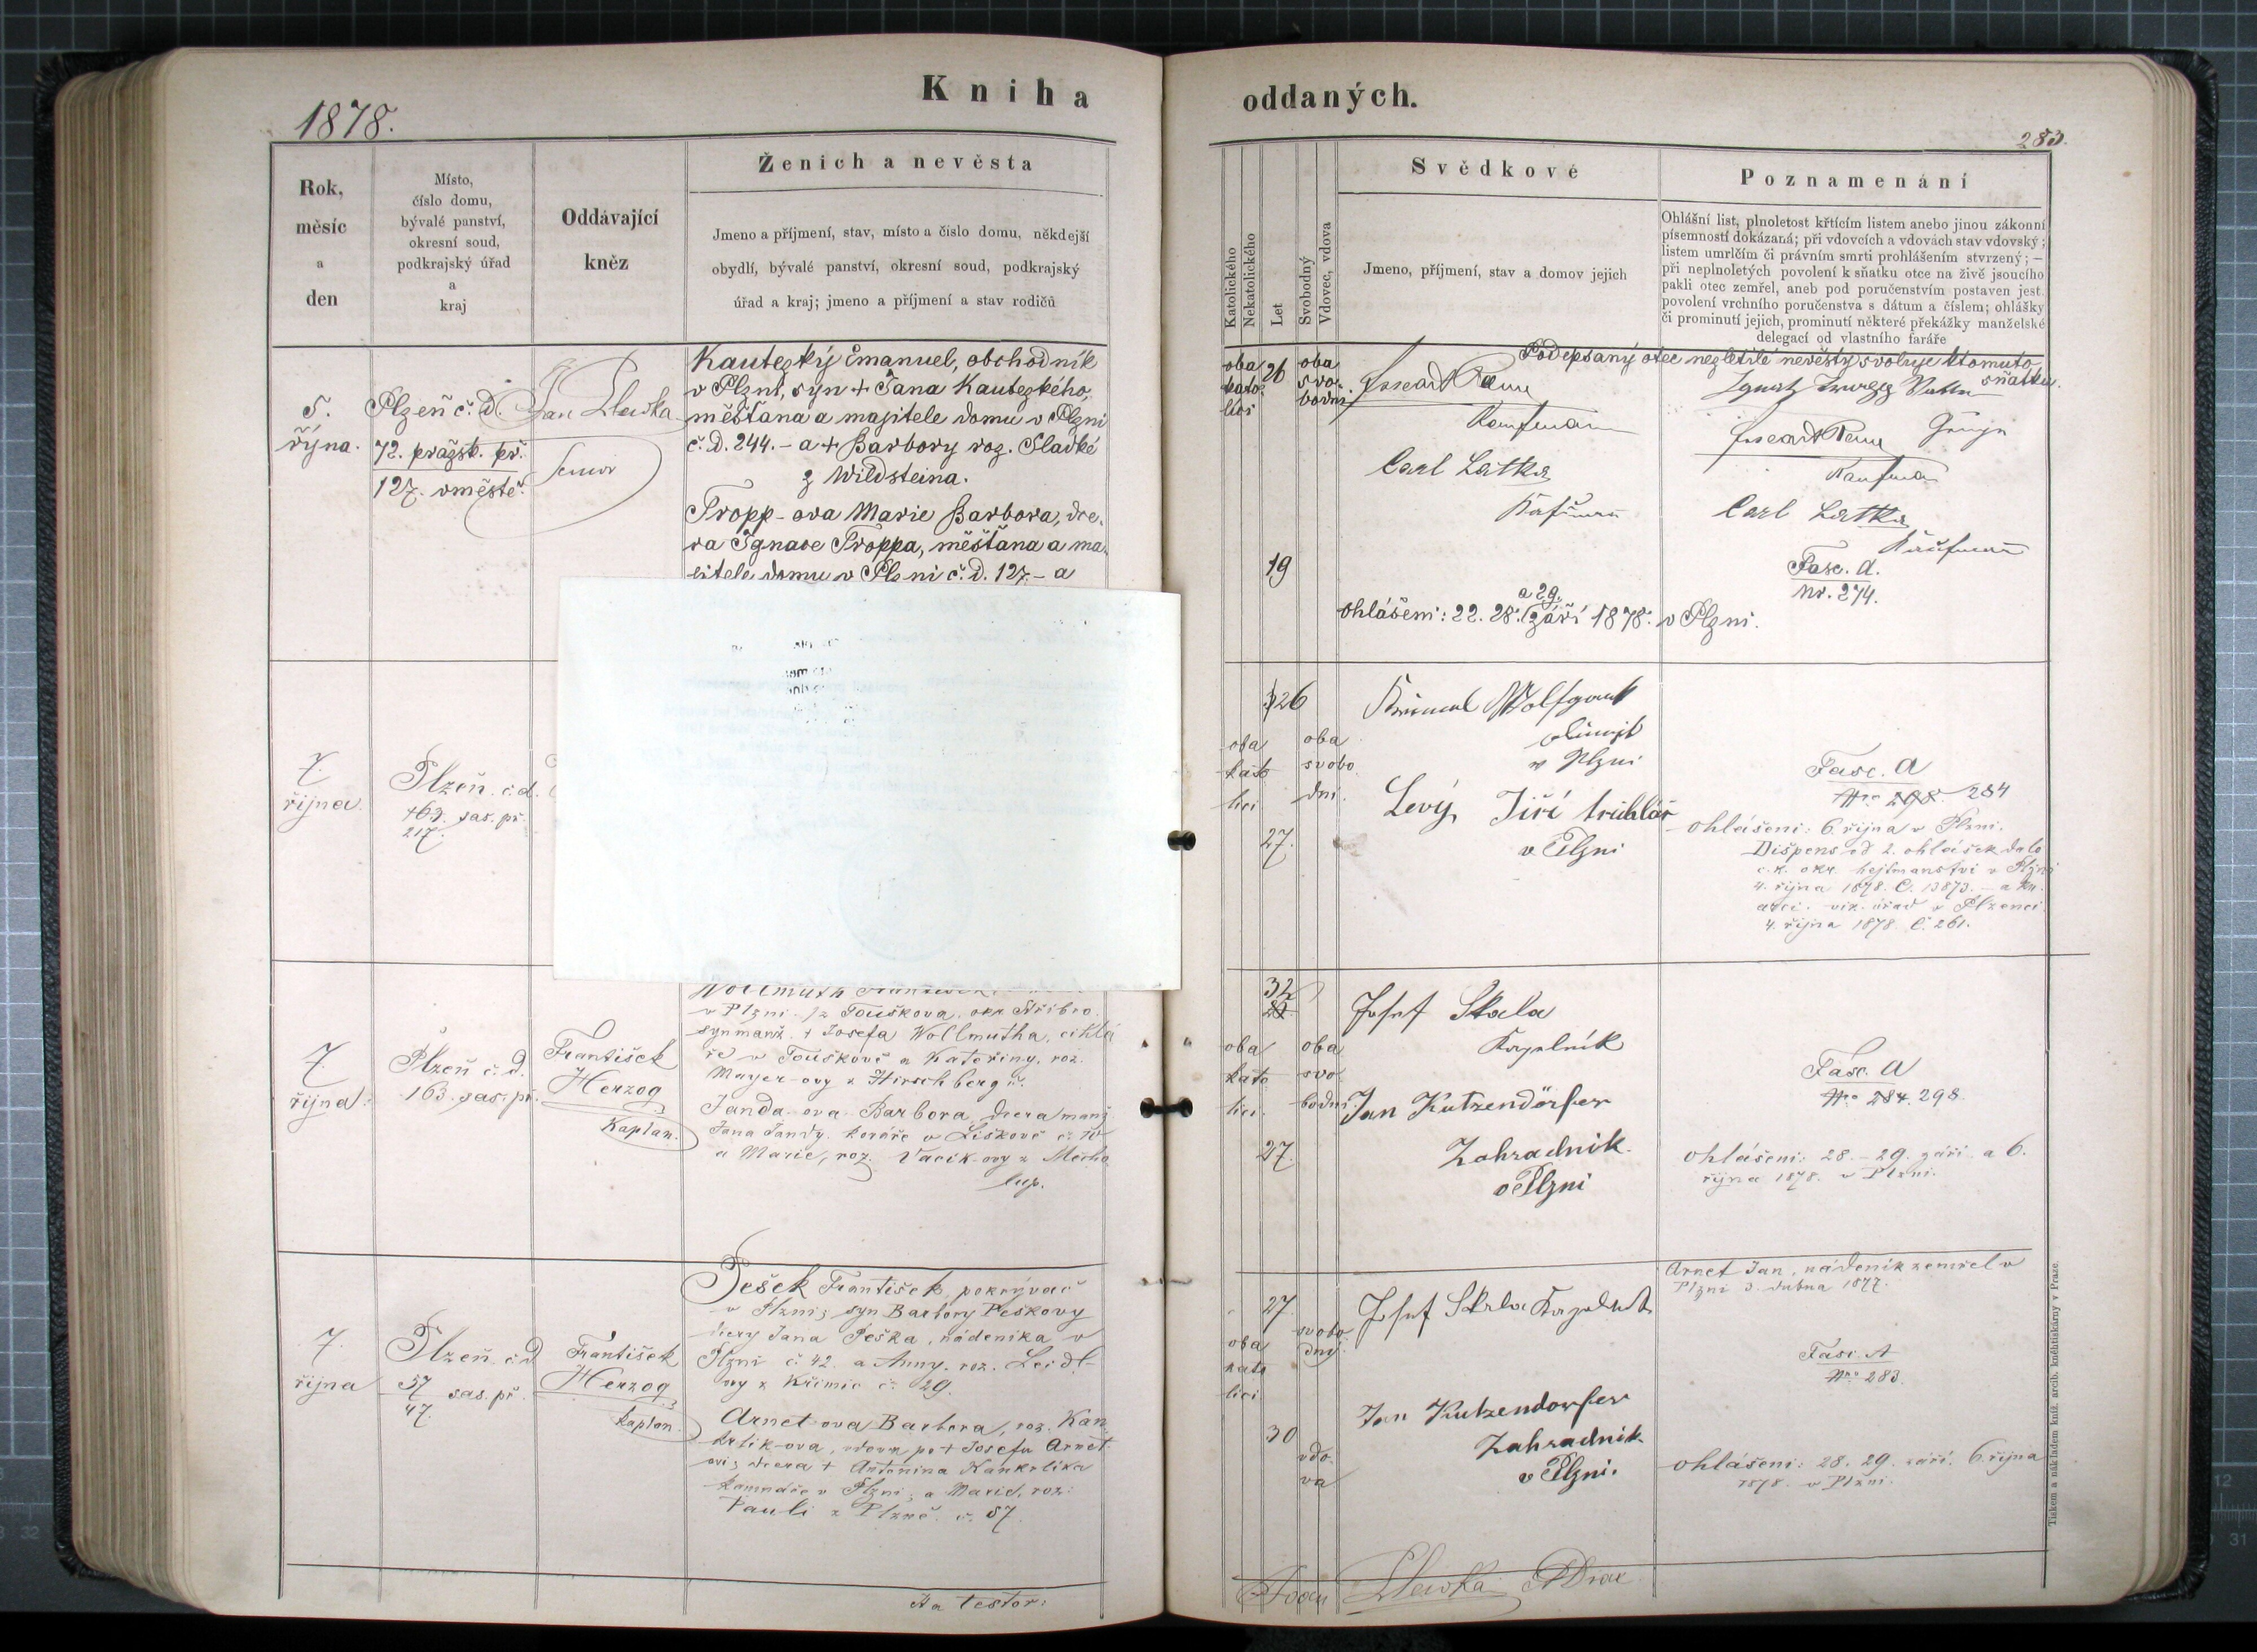 Kniha oddaných.
1878.
283.
Rok,
měsíc
a
den
Místo,
číslo domu,
bývalé panství,
okresní soud,
podkrajský úřad
a
kraj
Oddávající
kněz
Ženich a nevěsta
Jmeno a příjmení, stav, místo a číslo domu, někdejší
obydlí, bývalé panství, okresní soud, podkrajský
úřad a kraj; jmeno a příjmení a stav rodičů
Katolického
Nekatolického
Let
Svobodný
Vdovec, vdova
Svědkové
Jmeno, příjmení, stav a domov jejich
Poznamenání
Ohlášní list, plnoletost křtícím listem anebo jinou zákonní
písemností dokázaná; při vdovcích a vdovách stav vdovský;
listem umrlčím či právním smrti prohlášením stvrzený; —
při neplnoletých povolení k sňatku otce na živě jsoucího
pakli otec zemřel, aneb pod poručenstvím postaven jest
povolení vrchního poručenstva s dátum a číslem; ohlášky
či prominutí jejich, prominutí některé překážky manželské
delegací od vlastního faráře
5.
října.
Plzeň č. d.
72. pražsk. př.
127. v městě.
Jan
Senior
Kautezký Emanuel, obchodník
v Plzni, syn + Jana Kautezkého,
měšťana a majitele domu v Plzni
č. d. 244. – a + Barbory roz. Sladké
z Wildsteina.
Tropp-ova Marie Barbora, dce-
ra Ignace Troppa, měšťana a ma-
jitele domu v Plzni č. d. 127. – a
oba
kato-
líci
26
oba
svo-
bodni
19
Kaufmann
Carl Latka
Kaufmann
Podepsaný otec nezletilé nevěsty svoluje k tomuto
sňatku.
Kaufmann
Carl Latka
Kaufmann
Fasc. A.
Nr. 274.
a 29.
Ohlášení: 22. 28. září 1878. v Plzni.
7.
října.
Plzeň. č. d.
463. sas. př.
217.
26
oba
kato
líci
oba
svobo
dni.
27.
Wolfgang
v Plzni
Levý Jiří truhlář
v Plzni
Fasc. A
Nro 298. 284
Ohlášení: 6. října v Plzni.
Dispens od 2. ohlášek dalo
c. k. okr. hejtmanství v Plzni
4. října 1878. Č. 13873. – a
vik. úřad v Plzenci
4. října 1878. Č. 261.
7.
října.
Plzeň č. d.
163. sas. př.
František
Herzog
Kaplan.
Wollmuth
v Plzni. z Touškova, okr. Stříbro.
syn manž. + Josefa Wollmutha, cihlá
ře v Touškově a Kateřiny, roz.
Mayer-ovy z Hirschberg
Janda-ova Barbora, dcera manž
Jana Jandy. kováře v Liškově č. 10
a Marie, roz. Vacik-ovy z Mecho
lup.
32
oba
kato
líci.
oba
svo
bodni.
27.
Josef Skala
Jan Kutzendörfer
Zahradník
v Plzni
Fasc. A
Nro 284. 298.
Ohlášení: 28. – 29. září a 6.
října 1878. v Plzni.
7.
října
Plzeň č. d
57 sas. př.
47.
František
Herzog
Kaplan.
Pešek František, pokrývač
v Plzni; syn Barbory Peškovy
dcery Jana Peška, nádeníka v
Plzni č. 42. a Anny. roz. Leidl-
ovy z Křimic č. 29.
Arnet-ova Barbora, roz. Kan
krlik-ova, vdova po + Josefu Arnet
ovi; dcera + Antonína Kankrlika
kamnáře v Plzni; a Marie, roz.
Pauli z Plzně. č. 57.
27.
oba
kato
líci
svobo-
dný.
30
vdo-
va
Josef Skala
Jan Kutzendorfer
Zahradník
v Plzni.
Arnet Jan, nádeník zemřel v
Plzni 3. dubna 1877.
Fasc. A
Nro 283.
Ohlášení: 28. 29. září. 6. října
1878. v Plzni.
Tiskem a nákladem kníž. arcib. knihtiskárny v Praze.